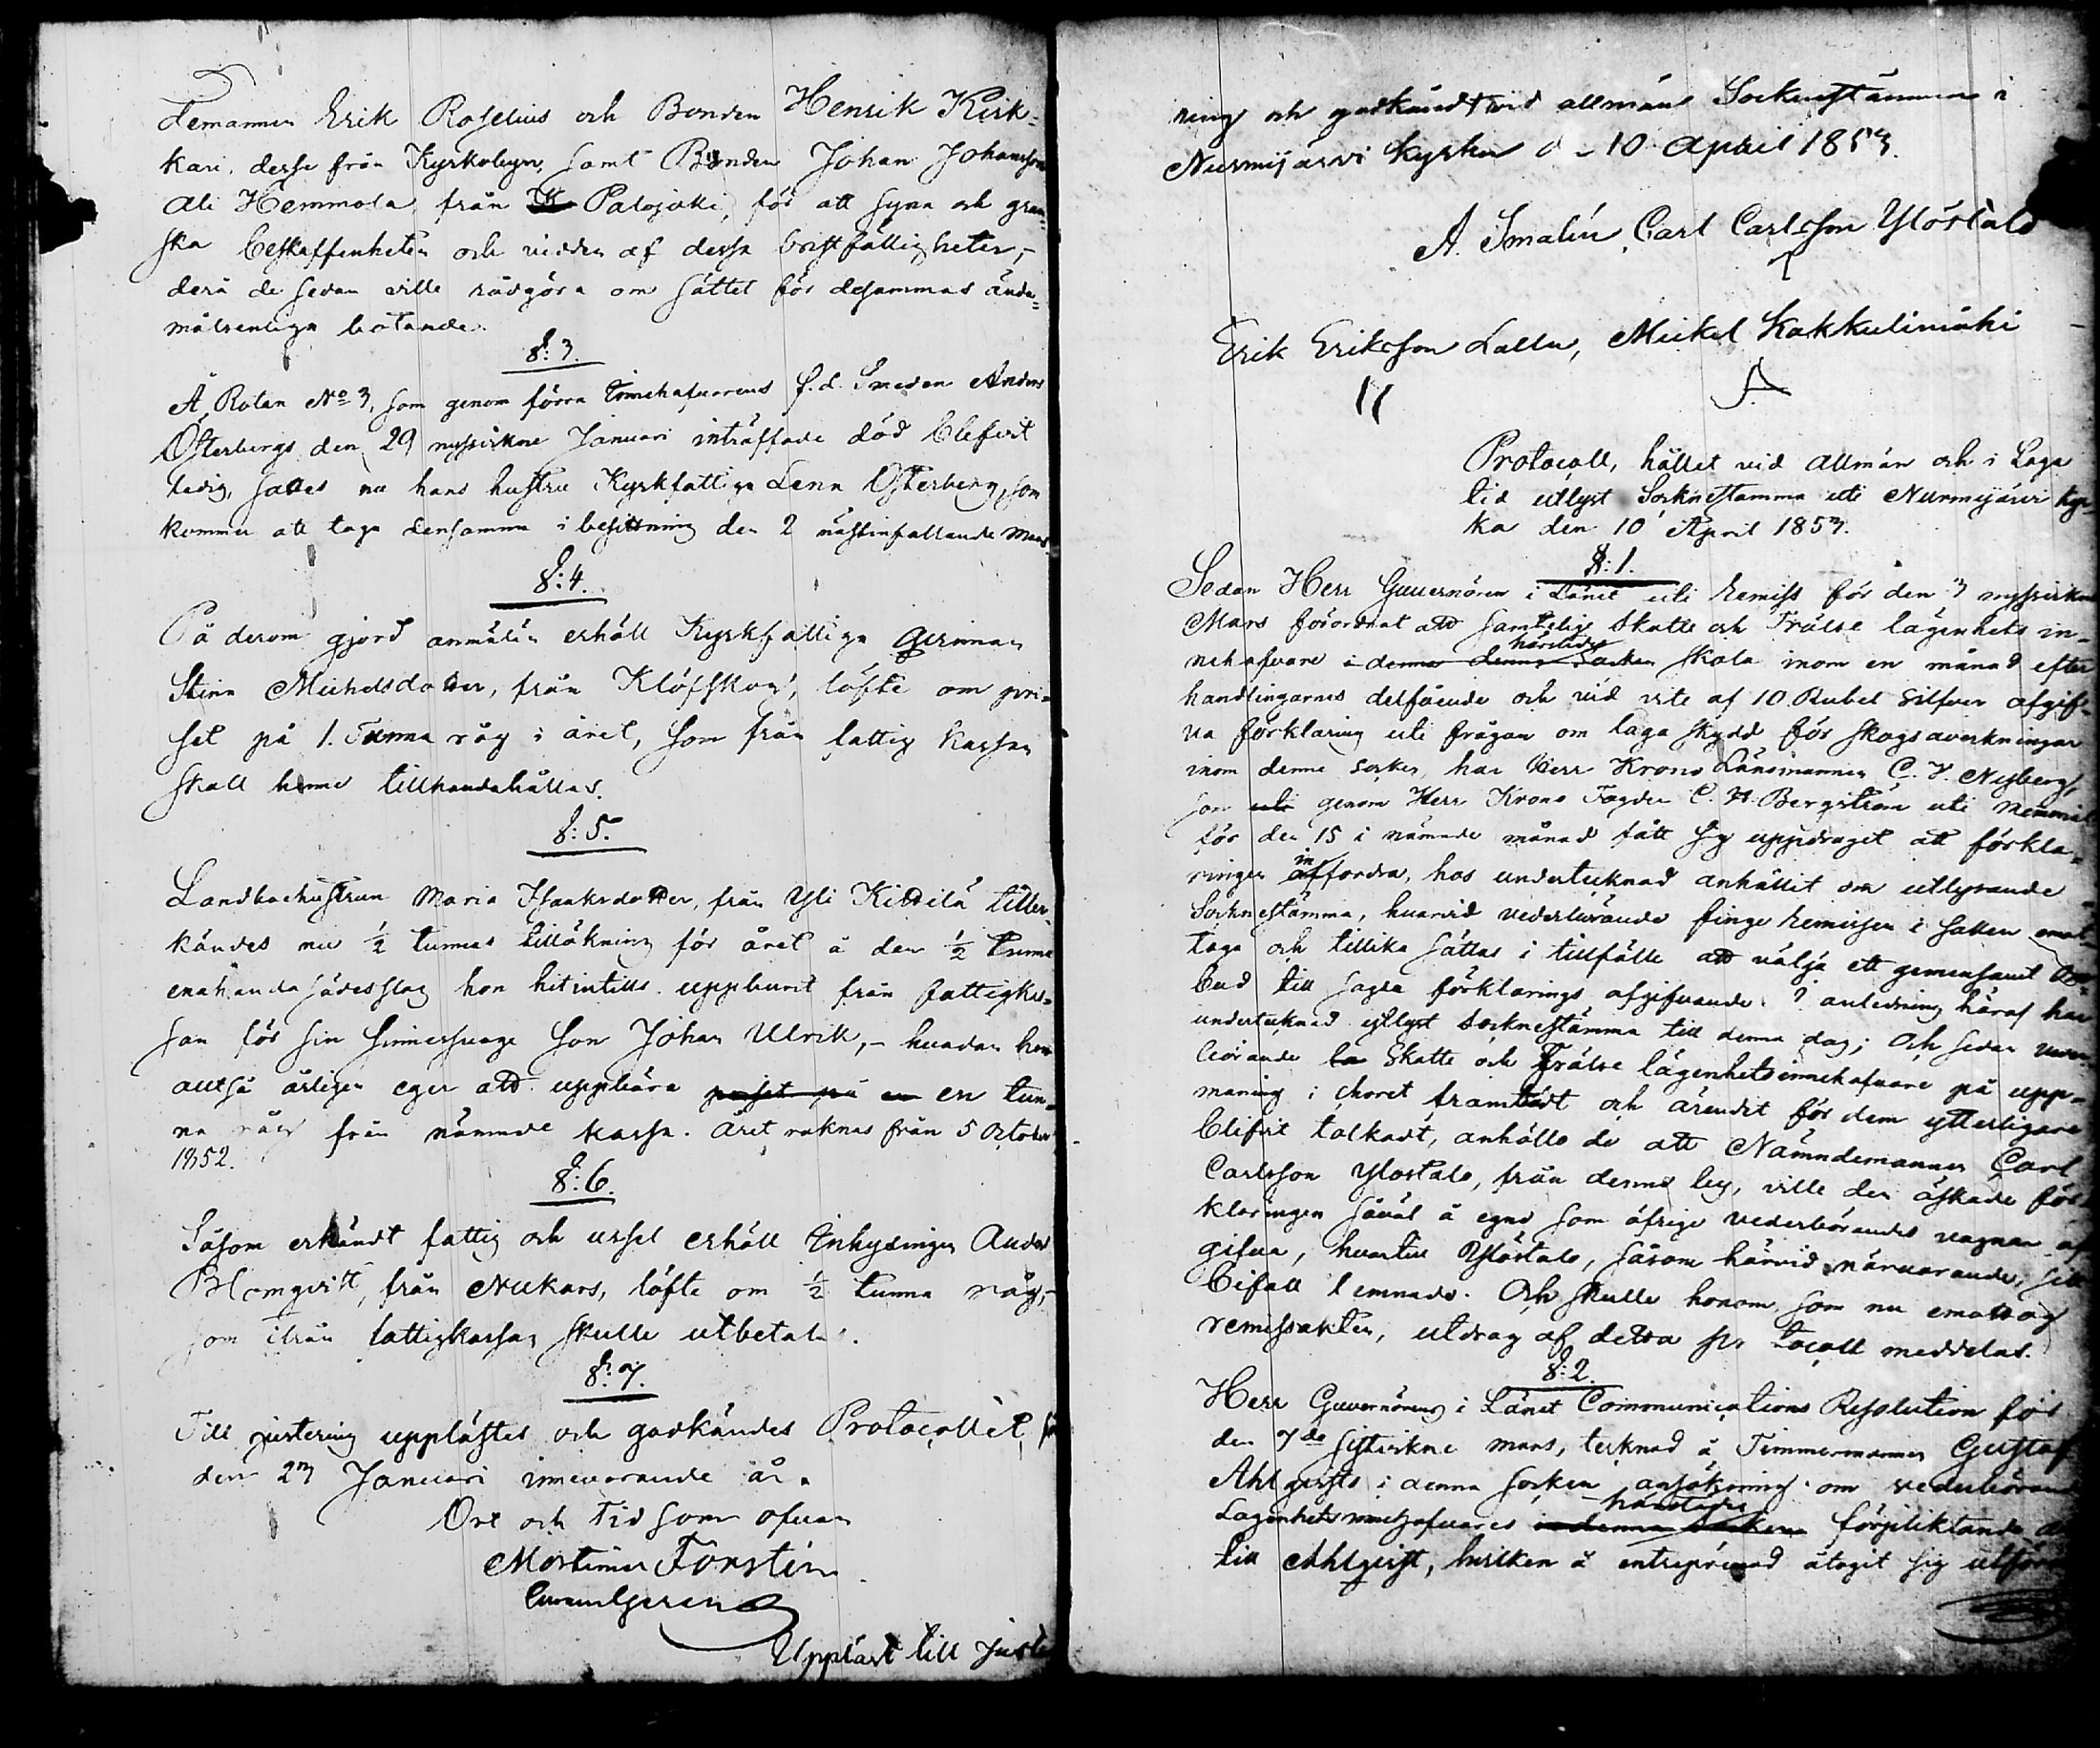 demannen Erik Roselius och Bonden Henrik Kirk-
kari, desse från Kyrkobyn, samt Bonden Johan Johansson
Ali Hemmola från Palojoki, för att syna och gran-
ska beskaffenheten och vidden af dessa bristfälligheter,-
derå de sedan ville rådgöra om sättet för desammas ända-
målsenliga botande.
§: 3.
Å Rotan No 3, som genom förra innehafvarens f.d. Smeden Anders
Österbergs den 29 nyssvikne Januari inträffade död blifvit
ledig, sattes nu hans hustru Kyrkfattiga Lena Österberg, som
kommer att taga densamma i besittning den 2 nästinfallande Mars
§: 4.
På derom gjord anmälan erhöll Kyrkfattiga qvinnan
Stina Michelsdotter, från Klöfskog, löfte om pri-
set på 1. Tunna råg i året, som från fattig kassan
skall henne tillhandahållas.
§: 5.
Landbohustrun Maria Isaaksdotter, från Yli Kittilä tiller-
kändes nu ½ tunnas tillökning för året å den ½ tunna
enahanda sädesslag hon hitintills uppburit från fattigkas-
san för sin sinnessvage Son Johan Ulrik,- hvadan hon
alltså årligen eger att uppbära priset på en en tun-
na råg från nämnde kassa. Året räknas från 5 October
1852.
§: 6.
Såsom erkändt fattig och ussel erhöll Inhysingen Anders
Blomqvist, från Nukars, löfte om ½ tunna råg,-
som ifrån fattigkassan skulle utbetalas.
§: 7.
Till justering upplästes och godkändes Protocollet, för
den 23 Januari innevarande år.
Ort och tid som ofvan
Mortimer Forstén
Uppläst till juste
ring och godkändt vid allmän Sockenstämma i
Nurmijärvi kyrka d. 10 April 1853.
A. Smalén, Carl Carlsson Ylöstalo
Erik Eriksson Lallu, Mickel Kakkulimäki
Protocoll, hållet vid allmän och i Laga
tid utlyst Socknestämma uti Nurmijärvi kyr-
ka den 10 April 1853.
§: 1.
Sedan Herr Guvernören i Länet uti remiss för den 3 nyssvikne
Mars förordnat att samtelige Skatte och Frälse lägenhets in-
härstädes
nehafvare i denna denna Socken skola inom en månad efter
handlingarnes delfående och vid vite af 10 Rubel Silfver afgif-
va förklaring uti frågan om laga skydd för skogsaverkningar
inom denne socken, har Herr Krono Länsmannen C. V. Nyberg,
som uti genom Herr Krono Fogden C. H. Bergström uti Memorial
för den 15 i nämnde månad fått sig uppdraget att förkla-
in
ringen affordra, hos undertecknad anhållit om utlysande
Socknestämma, hvarvid vederbörande finge remissen i saken emot
taga och tillika sättas i tillfälle att välja ett gemensamt Om-
bud till sagda förklarings afgifvande. I anledning häraf har
undertecknad utlyst Sockenstämma till denna dag; Och sedan veder-
börande Skatte och Frälse lägenhetsinnehafvare på upp-
maning i choret framträdt och ärendet för dem ytterligare
blifvit tolkadt, anhöllo de att Nämndemannen Carl
Carlsson Ylöstalo, från denne by, ville den äskade för-
klaringen såväl å egne som öfrige vederbörandes vägnar af-
gifva, hvartill Ylöstalo, såsom härvid närvarande, sitt
bifall lemnade. Och skulle honom, som nu emottog
remissakten, utdrag af detta protocoll meddelas.
§: 2.
Herr Guvernörens i Länet Communications Resolution för
den 7de sistvikne mars, tecknad å Timmermannen Gustaf
Ahlqvists i denna socken ansökning om vederbörande
härstädes
Lägenhetsinnehafvares i denna Socken förpliktande att
till Ahlqvist, hvilken å entreprenad åtagit sig utföra